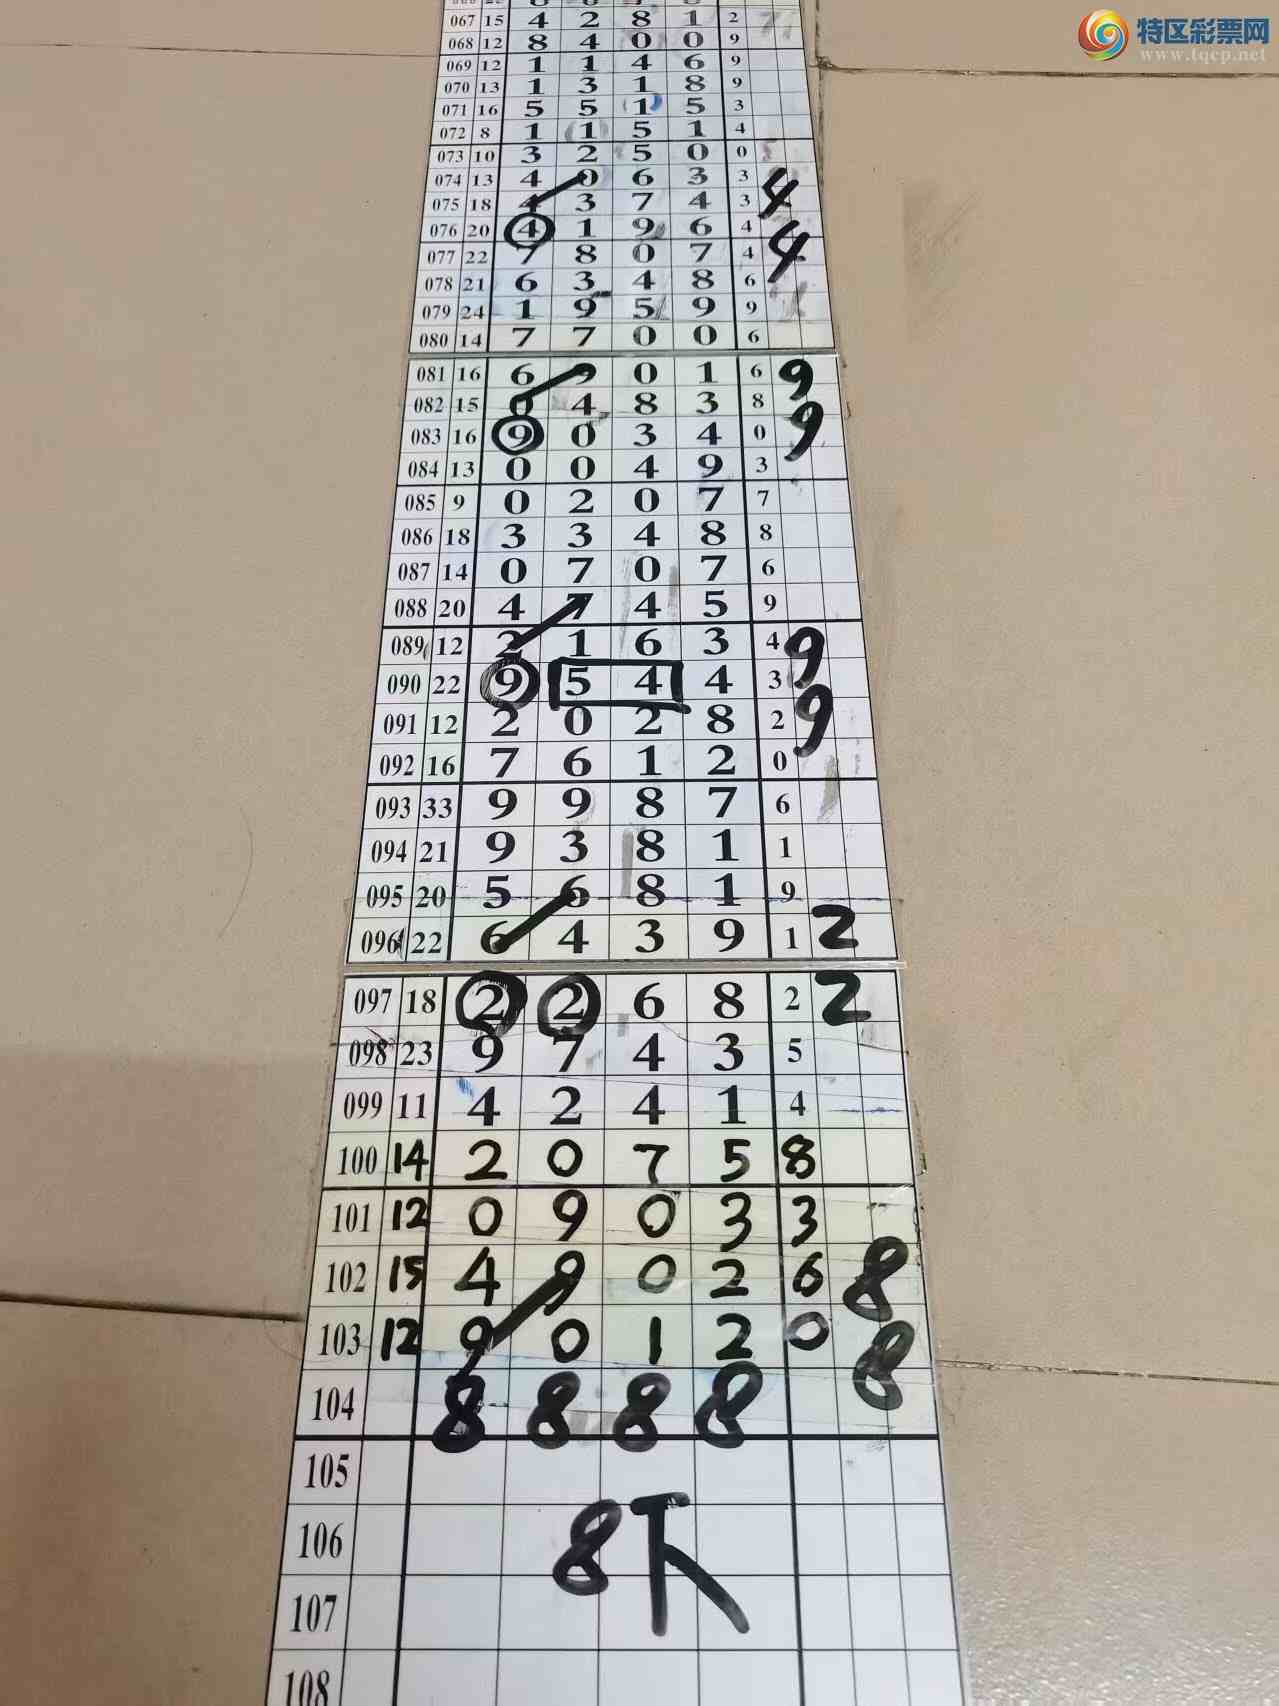 特区彩票网
www.tqcp.net
067 15 4 2 8 1 2
068 12 8 4 0 0 9
069 12 1 1 4 6 9
070 13 1 3 1 8 9
071 16 5 5 1 5 3
072 8 1 1 5 1 4
073 10 3 2 5 0 0
074 13 4 0 6 3 3 4
075 18 4 3 7 4 3
076 20 4 1 9 6 4 4
077 22 7 8 0 7 4
078 21 6 3 4 8 6
079 24 1 9 5 9 9
080 14 7 7 0 0 6
081 16 6 9 0 1 6 9
082 15 0 4 8 3 8 9
083 16 9 0 3 4 0
084 13 0 0 4 9 3
085 9 0 2 0 7 7
086 18 3 3 4 8 8
087 14 0 7 0 7 6
088 20 4 7 4 5 9
089 12 2 1 6 3 4 9
090 22 9 5 4 4 3 9
091 12 2 0 2 8 2
092 16 7 6 1 2 0
093 33 9 9 8 7 6
094 21 9 3 8 1 1
095 20 5 6 8 1 9
096 22 6 4 3 9 1 2
097 18 2 2 6 8 2 2
098 23 9 7 4 3 5
099 11 4 2 4 1 4
100 14 2 0 7 5 8
101 12 0 9 0 3 3
102 15 4 9 0 2 6 8
103 12 9 0 1 2 0 8
104 8 8 8 8
105
106 8下
107
108